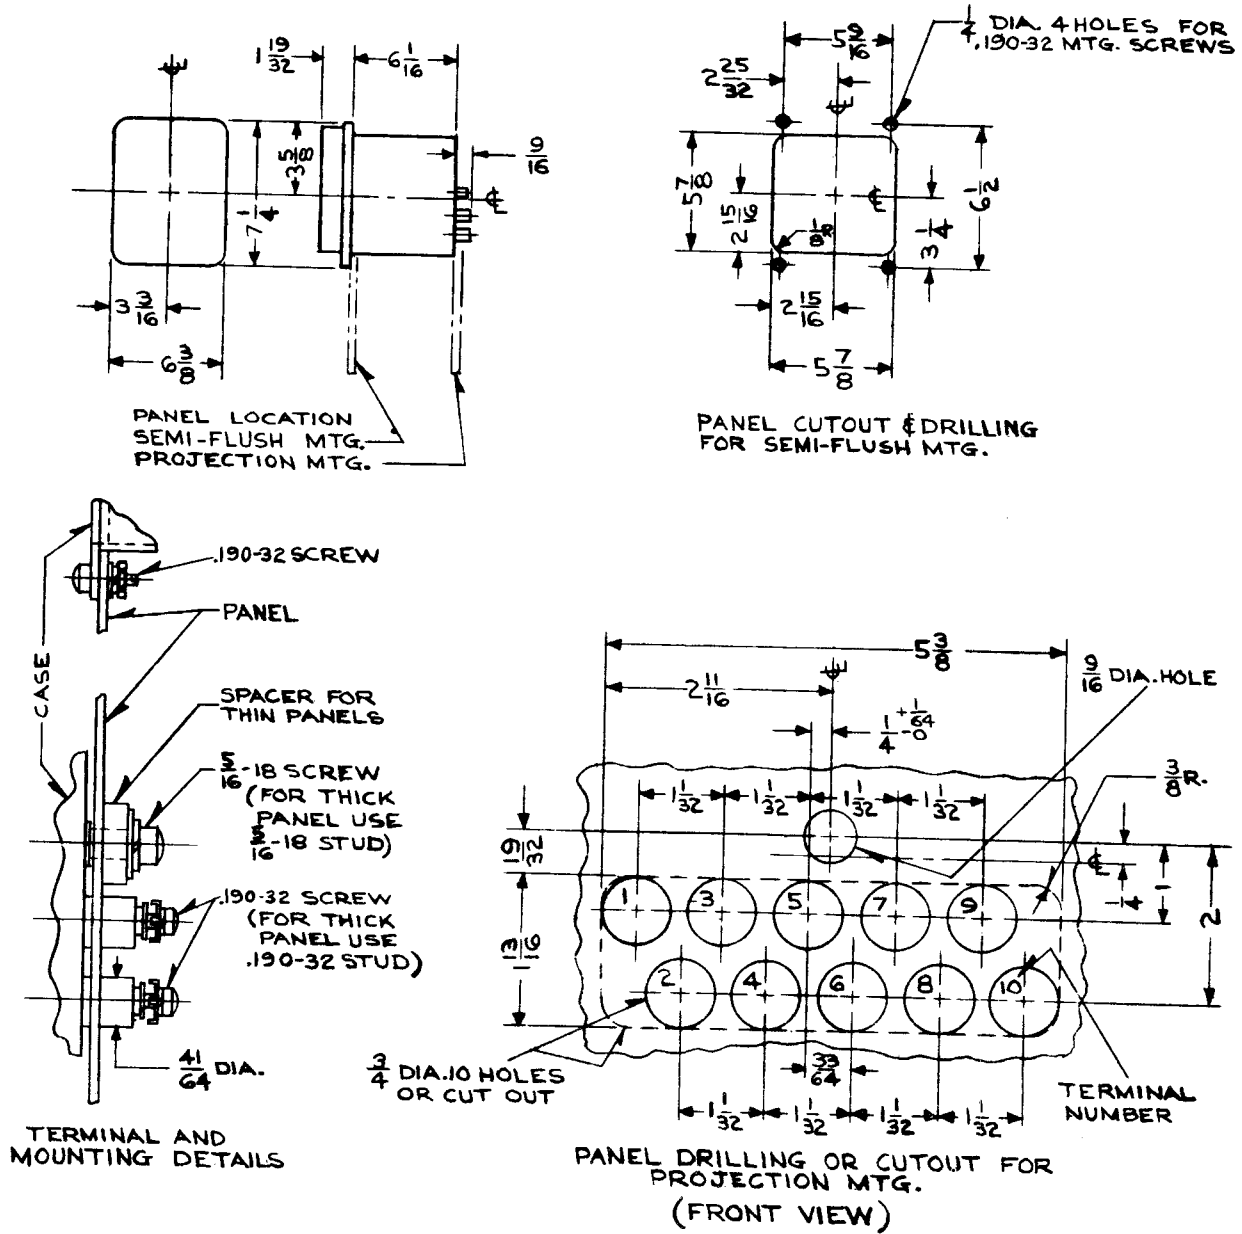 1 19/32
6 1/16
3 5/8
7 1/4
9/16
3 3/16
6 3/8
PANEL LOCATION
SEMI-FLUSH MTG.
PROJECTION MTG.
1/4 DIA. 4 HOLES FOR
.190-32 MTG. SCREWS
5 9/16
2 25/32
5 7/8
2 15/16
1/8 R
6 1/2
3 1/4
2 15/16
5 7/8
PANEL CUTOUT & DRILLING
FOR SEMI-FLUSH MTG.
.190-32 SCREW
PANEL
CASE
SPACER FOR
THIN PANELS
5/16-18 SCREW
(FOR THICK
PANEL USE
5/16-18 STUD)
.190-32 SCREW
(FOR THICK
PANEL USE
.190-32 STUD)
41/64 DIA.
TERMINAL AND
MOUNTING DETAILS
5 3/8
2 11/16
9/16 DIA. HOLE
1/4 +1/64 -0
3/8 R.
1 1/32
1 1/32
1 1/32
1 1/32
19/32
1 3 5 7 9
1/4
1
2
1 13/16
2 4 6 8 10
33/64
3/4 DIA. 10 HOLES
OR CUT OUT
TERMINAL
NUMBER
1 1/32
1 1/32
1 1/32
1 1/32
PANEL DRILLING OR CUTOUT FOR
PROJECTION MTG.
(FRONT VIEW)